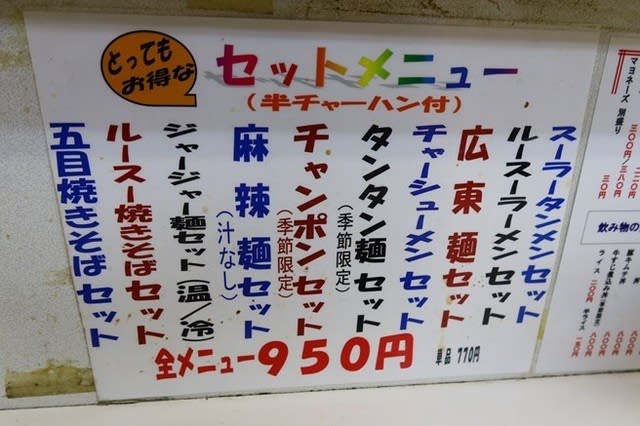 とっても
お得な
セットメニュー
(半チャーハン付)
スーラータンメンセット
ルースーラーメンセット
広東麺セット
チャーシューメンセット
タンタン麺セット
(季節限定)
チャンポンセット
(季節限定)
麻辣麺セット
(汁なし)
ジャージャー麺セット(温/冷)
ルースー焼きそばセット
五目焼きそばセット
全メニュー950円
単品 770円
マヨネーズ 別盛り
300円/380円
30円
飲み物の
ライス 200円 半ライス